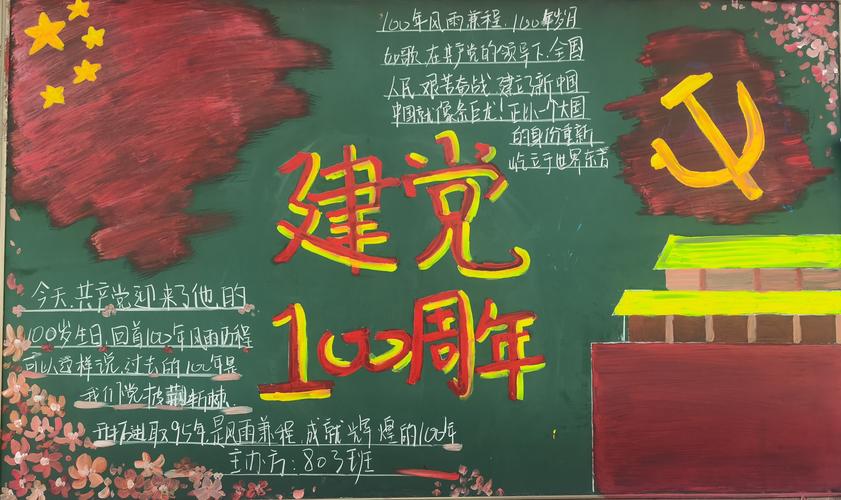 100年风雨兼程，100年岁月
如歌，在共产党的领导下，全国
人民艰苦奋战，建立了新中国
中国就像条巨龙！正以一个大国
的身份重新
屹立于世界东方
建党
100周年
今天，共产党迎来了他的
100岁生日，回首100年风雨历程
可以这样说，过去的100年是
我们党披荆斩棘
开拓进取95年，是风雨兼程，成就辉煌的100年
主办方：803班